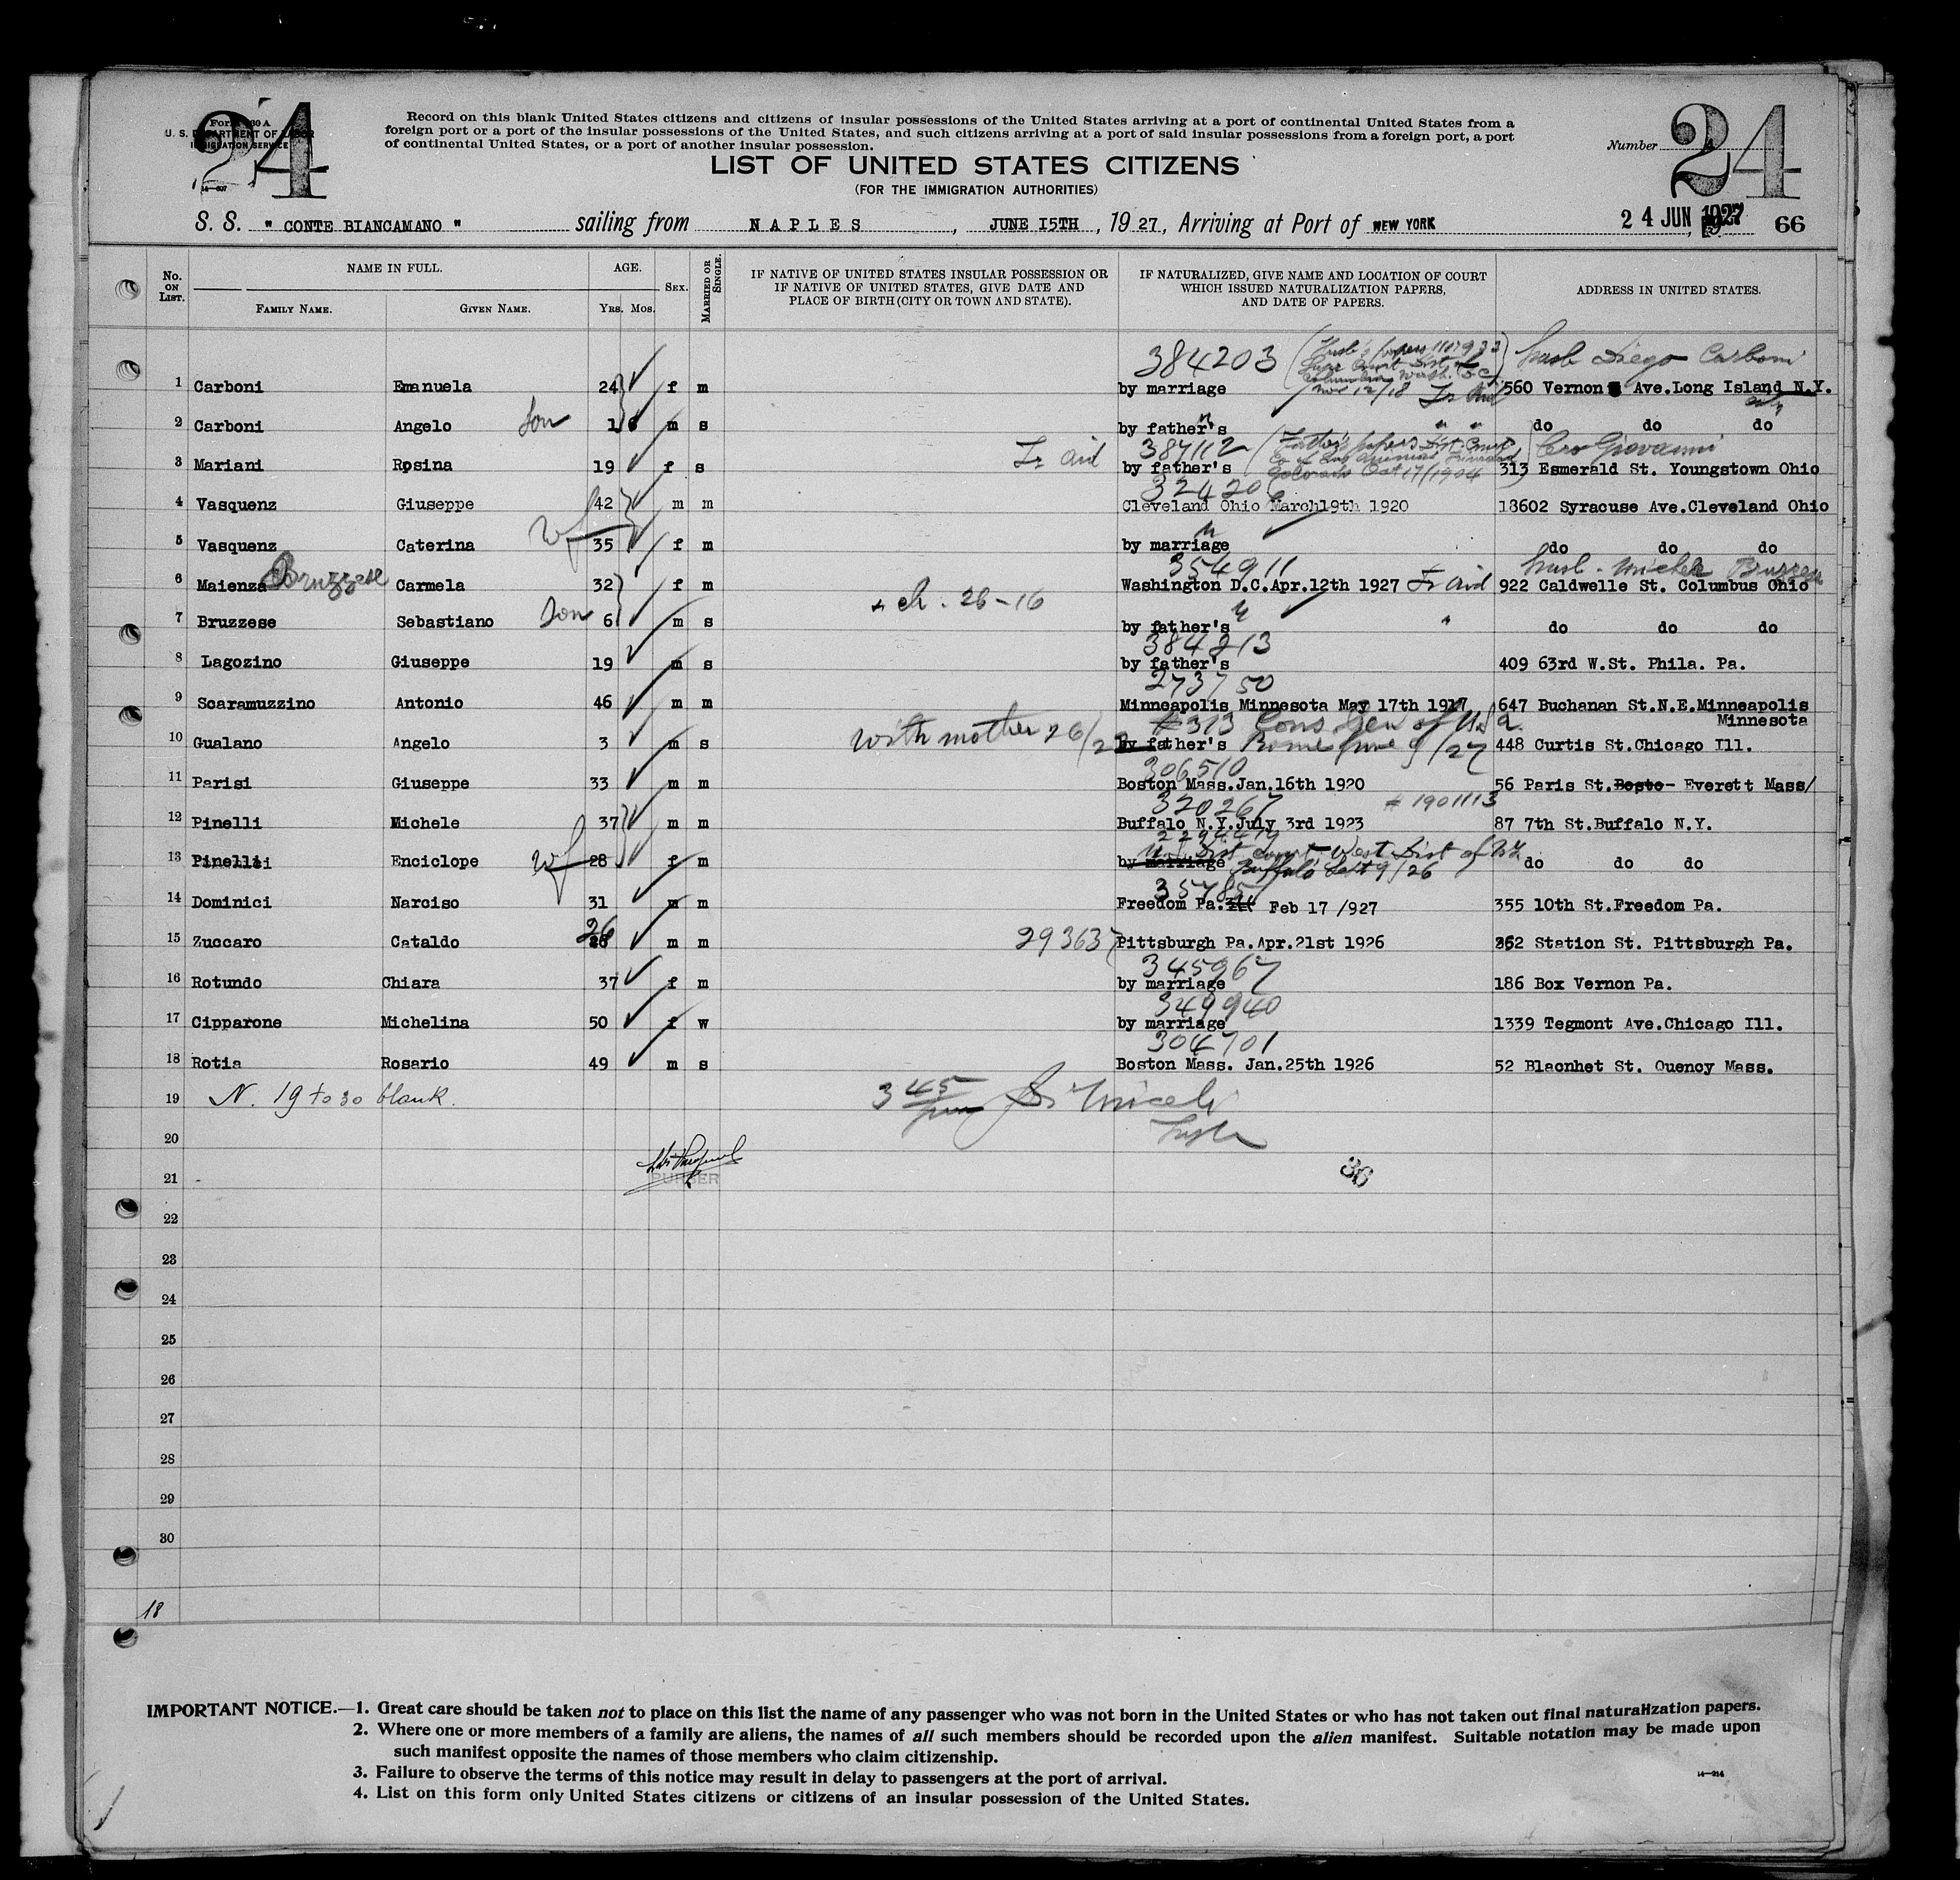 24
Form 630 A
U. S. DEPARTMENT OF LABOR
IMMIGRATION SERVICE
Record on this blank United States citizens and citizens of insular possessions of the United States arriving at a port of continental United States from a
foreign port or a port of the insular possessions of the United States, and such citizens arriving at a port of said insular possessions from a foreign port, a port
of continental United States, or a port of another insular possession.
Number 24
LIST OF UNITED STATES CITIZENS
(FOR THE IMMIGRATION AUTHORITIES)
S. S. " CONTE BIANCAMANO " sailing from NAPLES, JUNE I5TH, 1927, Arriving at Port of NEW YORK 24 JUN 1927 66
No. ON LIST. NAME IN FULL. AGE. SEX. MARRIED OR SINGLE. IF NATIVE OF UNITED STATES INSULAR POSSESSION OR IF NATIVE OF UNITED STATES, GIVE DATE AND PLACE OF BIRTH (CITY OR TOWN AND STATE). IF NATURALIZED, GIVE NAME AND LOCATION OF COURT WHICH ISSUED NATURALIZATION PAPERS, AND DATE OF PAPERS. ADDRESS IN UNITED STATES.
FAMILY NAME. GIVEN NAME. YRS. MOS.
384203 husb Diego Carboni
1 Carboni Emanuela 24 f m by marriage Nov 12/18 560 Vernon Ave.Long Island N.Y.
2 Carboni Angelo son 1 m s by father's " " do do do
387112
3 Mariani Rosina 19 f s Tr aid by father's Colorado Oct 17/1904 Giovanni 313 Esmerald St. Youngstown Ohio
32420
4 Vasquenz Giuseppe 42 m m Cleveland Ohio March19th 1920 18602 Syracuse Ave.Cleveland Ohio
5 Vasquenz Caterina wf 35 f m by marriage do do do
354911
6 Maienza Bruzzese Carmela 32 f m Washington D.C.Apr.12th 1927 Tr aid 922 Caldwelle St. Columbus Ohio
7 Bruzzese Sebastiano son 6 m s ch. 26-16 by father's do do do
384213
8 Lagozino Giuseppe 19 m s by father's 409 63rd W.St. Phila. Pa.
273750
9 Scaramuzzino Antonio 46 m m Minneapolis Minnesota May 17th 1917 647 Buchanan St.N.E.Minneapolis
Minnesota
#313 Cons Gen of U.S.A.
10 Gualano Angelo 3 m s with mother 26/22 By father's Rome June 9/27 448 Curtis St.Chicago Ill.
306510
11 Parisi Giuseppe 33 m m Boston Mass.Jan.16th 1920 56 Paris St.Bosto- Everett Mass/
320267 # 1901113
12 Pinelli Michele 37 m m Buffalo N.Y.July 3rd 1923 87 7th St.Buffalo N.Y.
U.S. Dist court West Dist of N.Y.
13 Pinelli Enciclope wf 28 f m by marriage Buffalo Sept 9/26 do do do
35785
14 Dominici Narciso 31 m m Freedom Pa. Feb 17 /927 355 10th St.Freedom Pa.
15 Zuccaro Cataldo 26 m m 293637 Pittsburgh Pa.Apr.21st 1926 262 Station St. Pittsburgh Pa.
345967
16 Rotundo Chiara 37 f m by marriage 186 Box Vernon Pa.
349940
17 Cipparone Michelina 50 f w by marriage 1339 Tegmont Ave.Chicago Ill.
304701
18 Rotia Rosario 49 m s Boston Mass. Jan.25th 1926 52 Blacnhet St. Quency Mass.
19 N. 19 to 30 blank. 345
20
21 PURSER 36
22
23
24
25
26
27
28
29
30
18
IMPORTANT NOTICE.—1. Great care should be taken not to place on this list the name of any passenger who was not born in the United States or who has not taken out final naturalization papers.
2. Where one or more members of a family are aliens, the names of all such members should be recorded upon the alien manifest. Suitable notation may be made upon
such manifest opposite the names of those members who claim citizenship.
3. Failure to observe the terms of this notice may result in delay to passengers at the port of arrival.
4. List on this form only United States citizens or citizens of an insular possession of the United States.